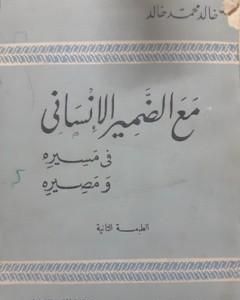 خالد محمد خالد
مع الضمير الإنساني
في مسيره
ومصيره
الطبعة الثانية